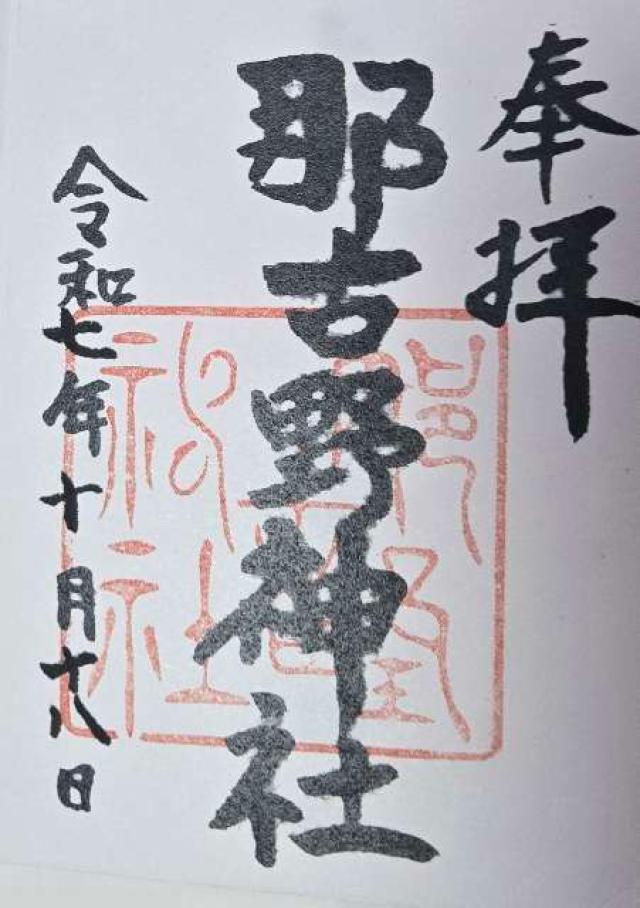 奉拝
那古野神社
令和七年十月十八日